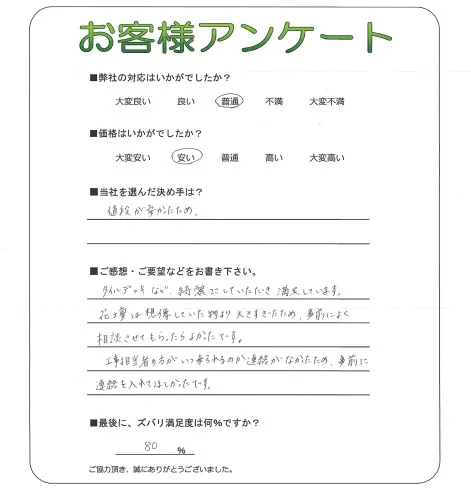 お客様アンケート
■弊社の対応はいかがでしたか？
大変良い 良い 普通 不満 大変不満
■価格はいかがでしたか？
大変安い 安い 普通 高い 大変高い
■当社を選んだ決め手は？
値段が安かたため。
■ご感想・ご要望などをお書き下さい。
タイルデッキなど、綺麗にしていただき満足しています。
花壇は想像していた物より大きすぎたため、事前によく
相談させてもらったらよかったです。
工事担当者の方がいつ来られるのか連絡がなかたため、事前に
連絡を入れてほしかったです。
■最後に、ズバリ満足度は何％ですか？
80 %
ご協力頂き、誠にありがとうございました。